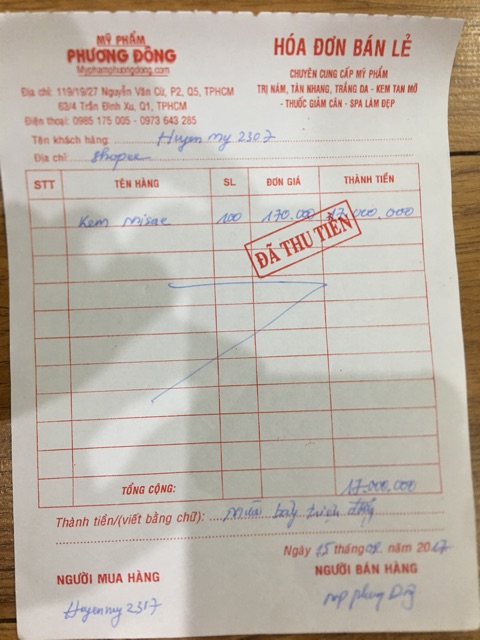 MỸ PHẨM
PHƯƠNG ĐÔNG
Myphamphuongdong.com
Địa chỉ: 119/19/27 Nguyễn Văn Cừ, P2, Q5, TPHCM
63/4 Trần Đình Xu, Q1, TPHCM
Điện thoại: 0985 175 005 - 0973 643 285
HÓA ĐƠN BÁN LẺ
CHUYÊN CUNG CẤP MỸ PHẨM
TRỊ NÁM, TÀN NHANG, TRẮNG DA - KEM TAN MỠ
- THUỐC GIẢM CÂN - SPA LÀM ĐẸP
Tên khách hàng: Huyen my 2307
Địa chỉ: shopee
STT TÊN HÀNG SL ĐƠN GIÁ THÀNH TIỀN
Kem 100 170.000 17.000.000
ĐÃ THU TIỀN
TỔNG CỘNG: 17.000.000
Thành tiền/(viết bằng chữ): mười bảy triệu
Ngày 15 tháng 09 năm 2017
NGƯỜI MUA HÀNG NGƯỜI BÁN HÀNG
Huyenmy